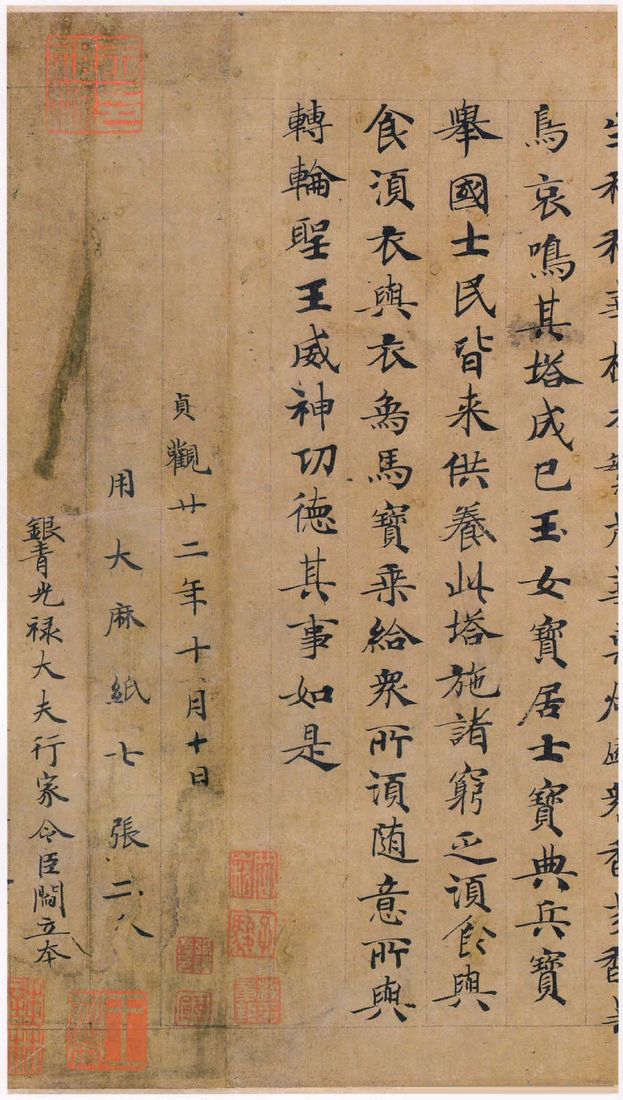 鳥哀鳴其塔成已玉女寶居士寶典兵寶
舉國士民皆来供養此塔施諸窮乏須食與
食須衣與衣象馬寶乗給衆所須随意所與
轉輪聖王威神功徳其事如是
貞觀廿二年十月十日
用大麻紙七張二分
銀青光禄大夫行家令臣閻立本